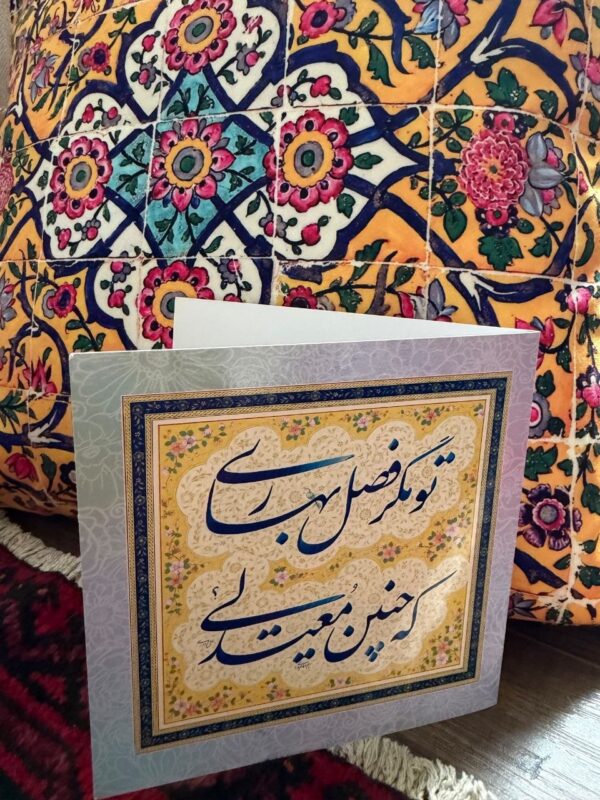 تو مگر فصل بهاری
که چنین معتدلی؟